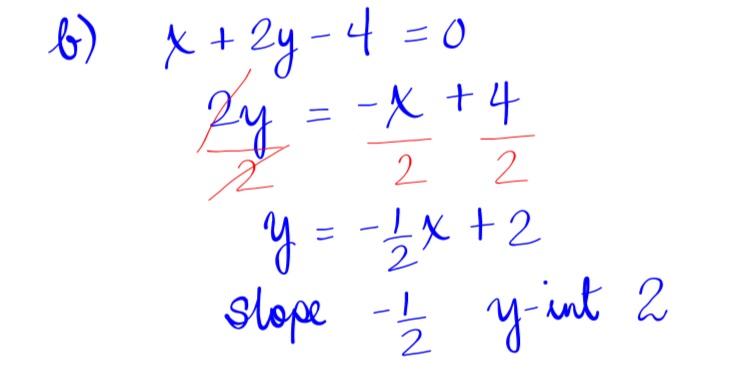 b) x + 2y - 4 = 0
2y/2 = -x/2 + 4/2
y = -1/2 x + 2
slope -1/2 y-int 2